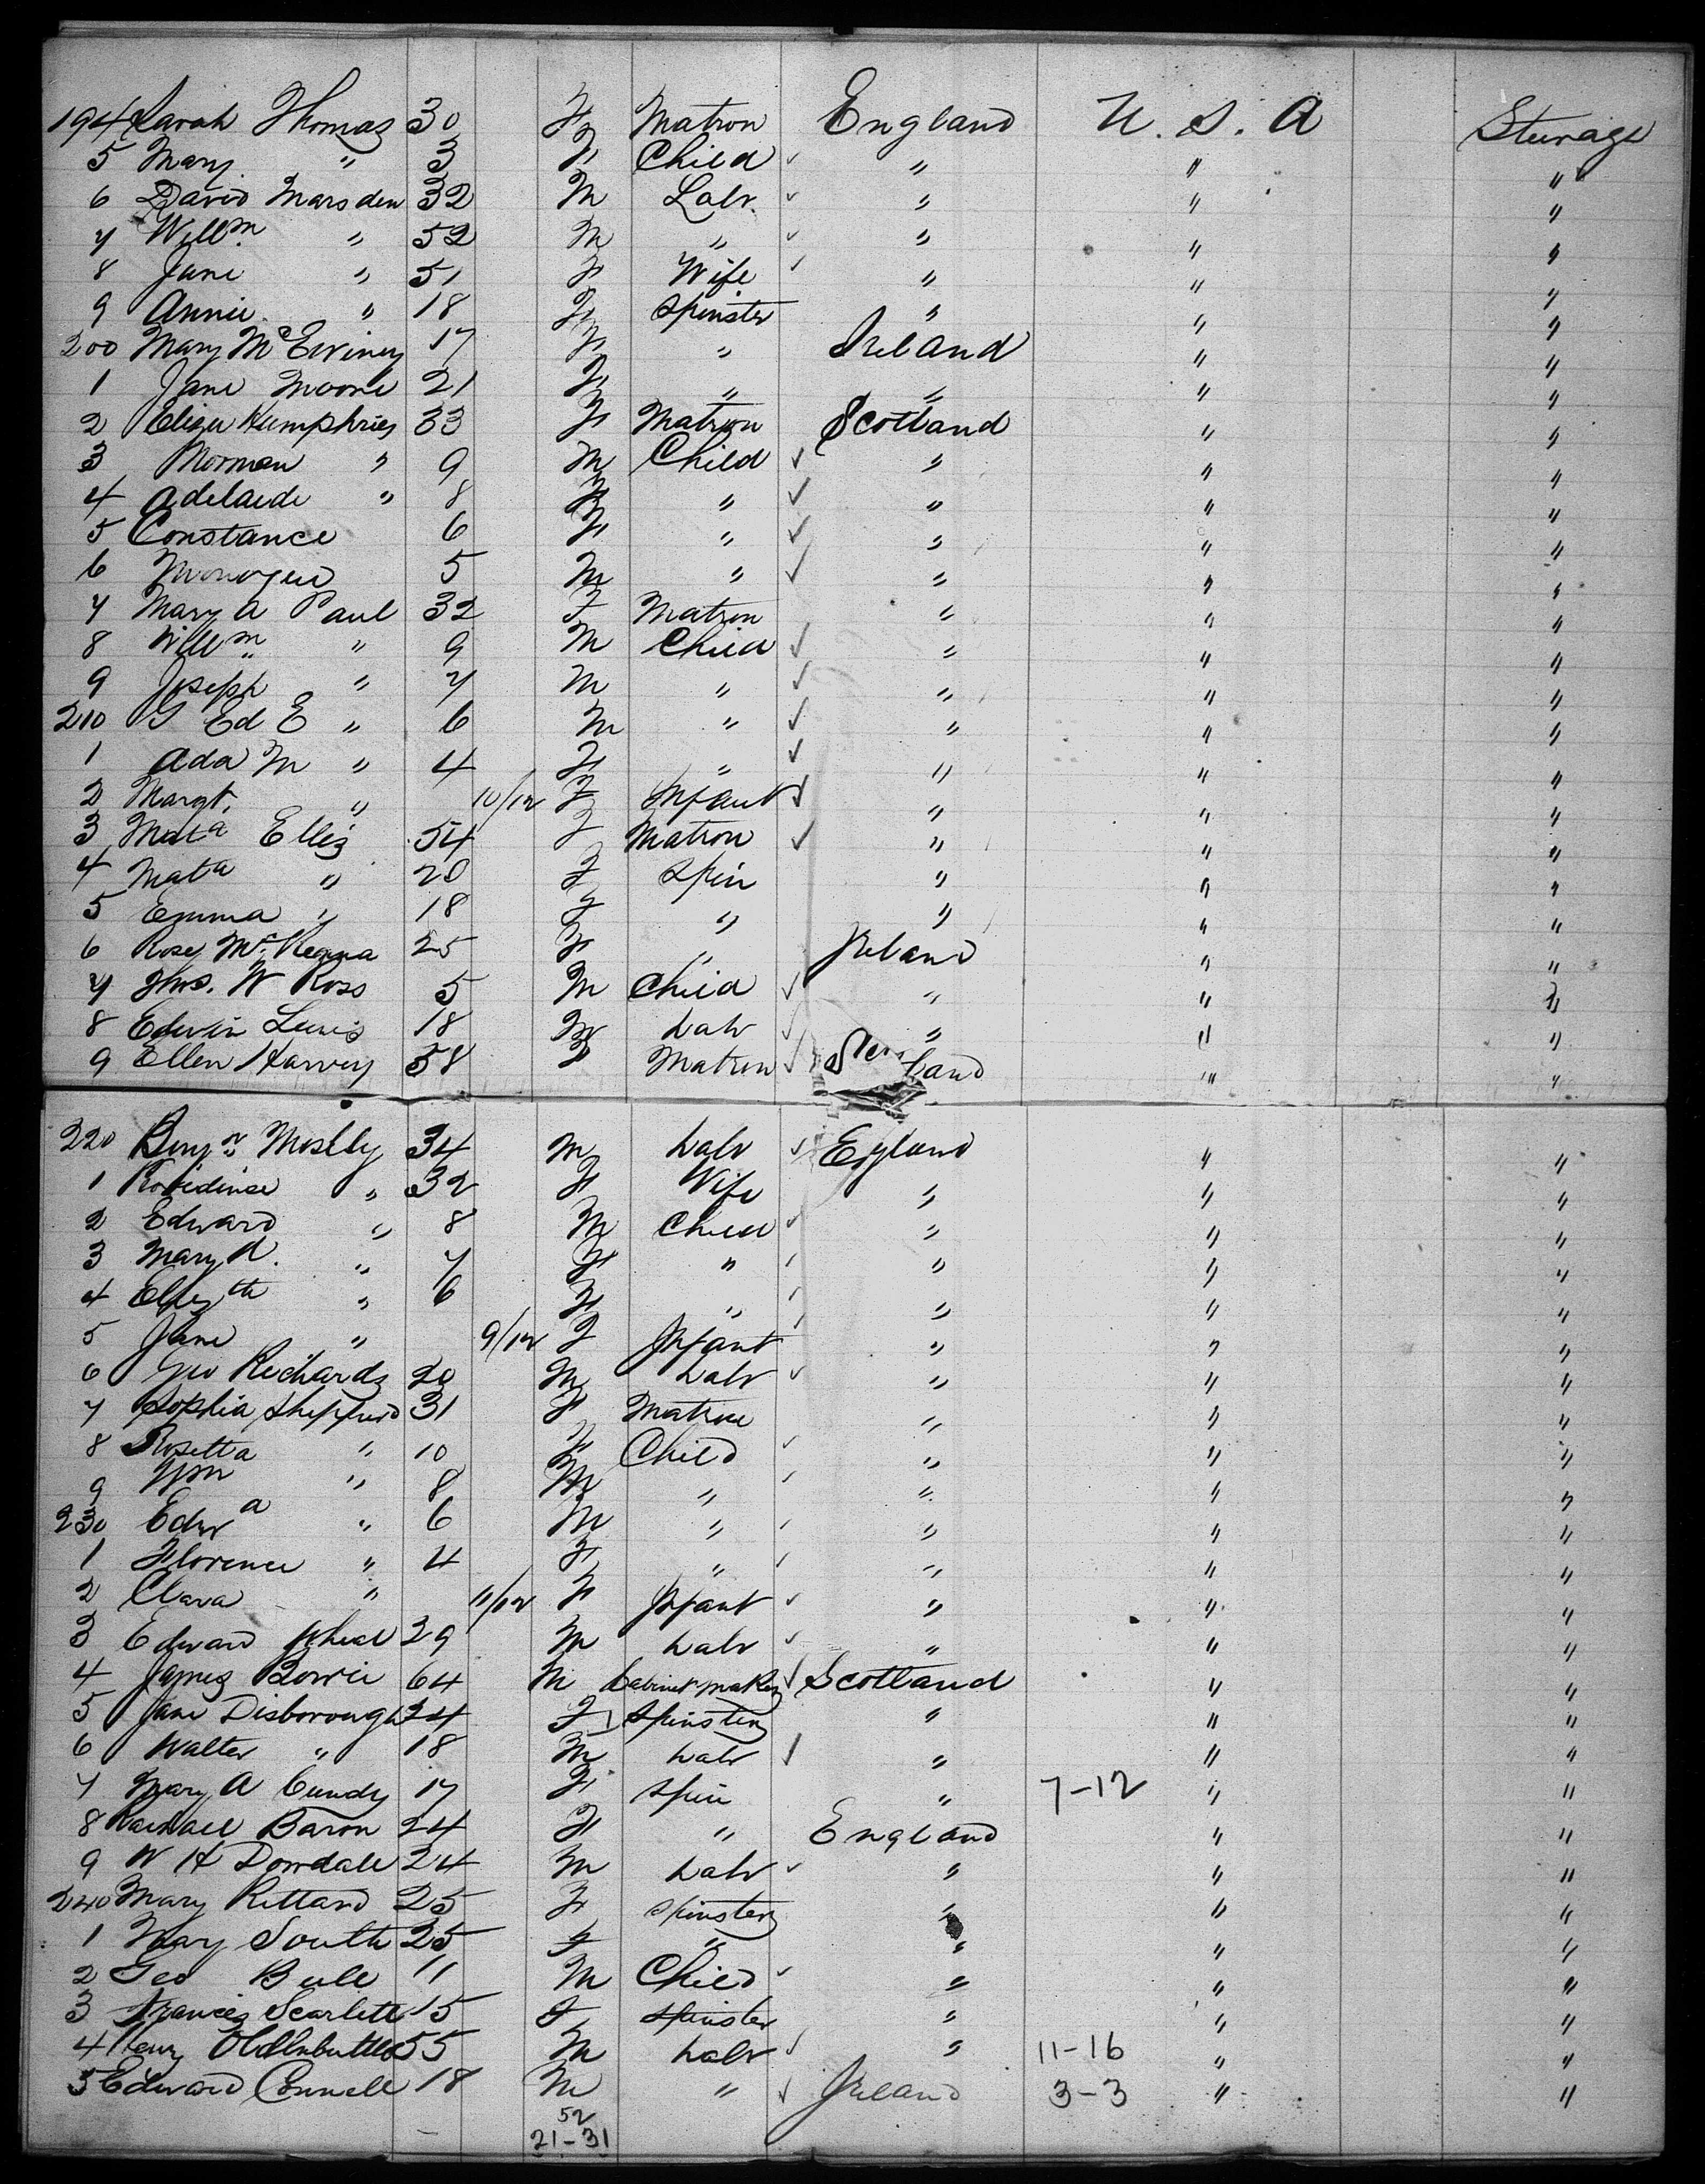 194 Sarah Thomas 30 F Matron England U. S. A Steerage
5 Mary " 3 F Child ✓ " " "
6 David Marsden 32 M Labr ✓ " " "
7 Willm " 52 M " ✓ " " "
8 Jane " 51 F Wife ✓ " " "
9 Annie " 18 F Spinster " " "
200 Mary McEviney 17 F " Ireland " "
1 Jane Moore 21 F " " " "
2 Eliza Humphries 33 F Matron Scotland " "
3 Norman " 9 M Child ✓ " " "
4 Adelaide " 8 F " ✓ " " "
5 Constance 6 F " ✓ " " "
6 5 M " ✓ " " "
7 Mary A Paul 32 F Matron " " "
8 Willm " 9 M Child ✓ " " "
9 Joseph " 7 M " ✓ " " "
210 G Ed E " 6 M " ✓ " " "
1 Ada M " 4 F " ✓ " " "
2 Margt. " 10/12 F Infant ✓ " " "
3 Mata Ellis 54 F Matron ✓ " " "
4 Mata " 20 F Spin " " "
5 Emma " 18 F " " " "
6 Rosey McKenna 25 F " Ireland " "
7 Thos. W Ross 5 M Child ✓ " " "
8 Edwin Lewis 18 M Labr ✓ " " "
9 Ellen Harvey 58 F Matron ✓ land " "
220 Benjn Moslly 34 M Labr ✓ England " "
1 " 32 F Wife " " "
2 Edward " 8 M Child ✓ " " "
3 Mary A. " 7 F " ✓ " " "
4 " 6 F " ✓ " " "
5 Jane " 9/12 F Infant ✓ " " "
6 Geo Richards 20 M Labr ✓ " " "
7 Sophia Sheppard 31 F Matron " " "
8 Rosetta " 10 F Child ✓ " " "
9 Wm " 8 M " ✓ " " "
230 Edwd " 6 M " ✓ " " "
1 Florence " 4 F " ✓ " " "
2 Clara " 11/12 F Infant ✓ " " "
3 Edward 29 M Labr ✓ " " "
4 James Bowie 64 M Cabinet maker ✓ Scotland " "
5 Jane Disborough 24 F Spinster " " "
6 Walter " 18 M Labr ✓ " " "
7 Mary A Cundy 17 F Spin " 7-12 " "
8 Rachael Baron 24 F " England " "
9 W H Dowdall 24 M Labr ✓ " " "
240 Mary Rittard 25 F Spinster " " "
1 Mary South 25 F " " " "
2 Geo Bull 11 M Child ✓ " " "
3 Francis Scarlett 15 F Spinster " " "
4 Henry 55 M Labr ✓ " 11-16 " "
5 Edward Connell 18 M " ✓ Ireland 3-3 " "
52
21-31